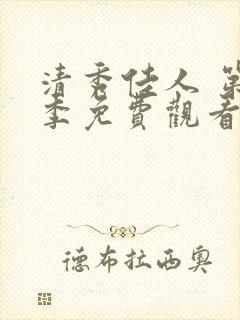 清秀佳人 第
季免費觀看
德布拉西奥